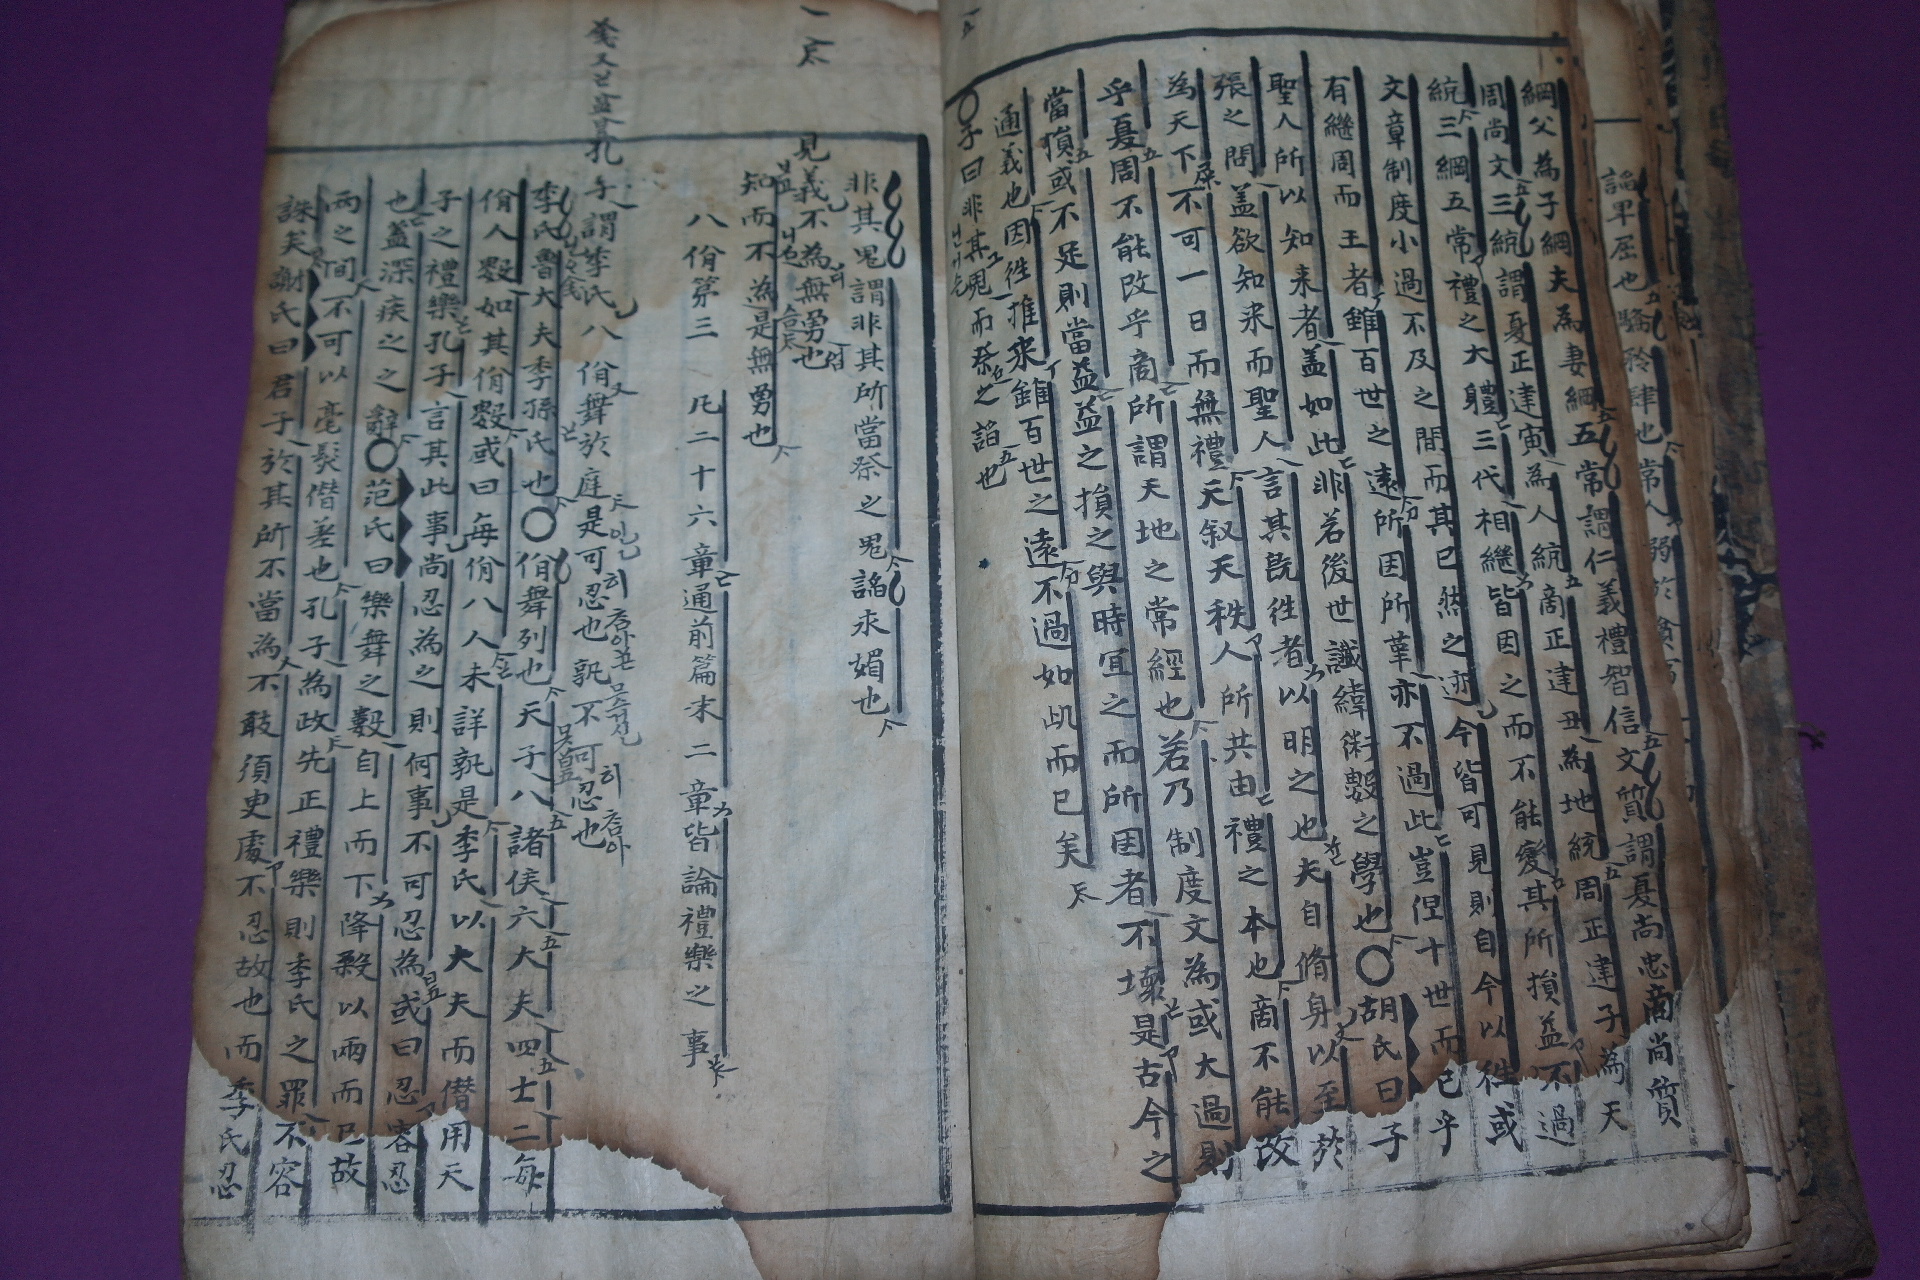 諂卑屈也驕矜肆也常人
綱父為子綱夫為妻綱五常謂仁義禮智信文質謂夏尚忠商尚質
周尚文三統謂夏正建寅為人統商正建丑為地統周正建子為天
統三綱五常禮之大體三代相繼皆因之而不能變其所損益不過
文章制度小過不及之間而其已然之迹今皆可見則自今以往或
有繼周而王者雖百世之遠所因所革亦不過此豈但十世而已乎
聖人所以知来者盖如此非若後世讖緯術數之學也○胡氏曰子
張之問盖欲知来而聖人言其旣往者以明之也夫自脩身以至於
為天下不可一日而無禮天叙天秩人所共由禮之本也商不能改
乎夏周不能改乎商所謂天地之常經也若乃制度文為或大過則
當損或不足則當益益之損之與時宜之而所因者不壞是古今之
通義也因往推来雖百世之遠不過如此而已矣
○子曰非其鬼而祭之諂也
非其鬼謂非其所當祭之鬼諂求媚也
見義不為無勇也
知而不為是無勇也
八佾第三 凡二十六章通前篇末二章皆論禮樂之事
孔子謂季氏八佾舞於庭是可忍也孰不可忍也
季氏魯大夫季孫氏也○佾舞列也天子八諸侯六大夫四士二每
佾人數如其佾數或曰每佾八人未詳孰是季氏以大夫而僭用天
子之禮樂孔子言其此事尚忍為之則何事不可忍為或曰忍容忍
也盖深疾之之辭○范氏曰樂舞之數自上而下降殺以兩而已故
兩之間不可以毫髮僭差也孔子為政先正禮樂則季氏之罪不容
誅矣謝氏曰君子於其所不當為不敢須臾處不忍故也而季氏忍